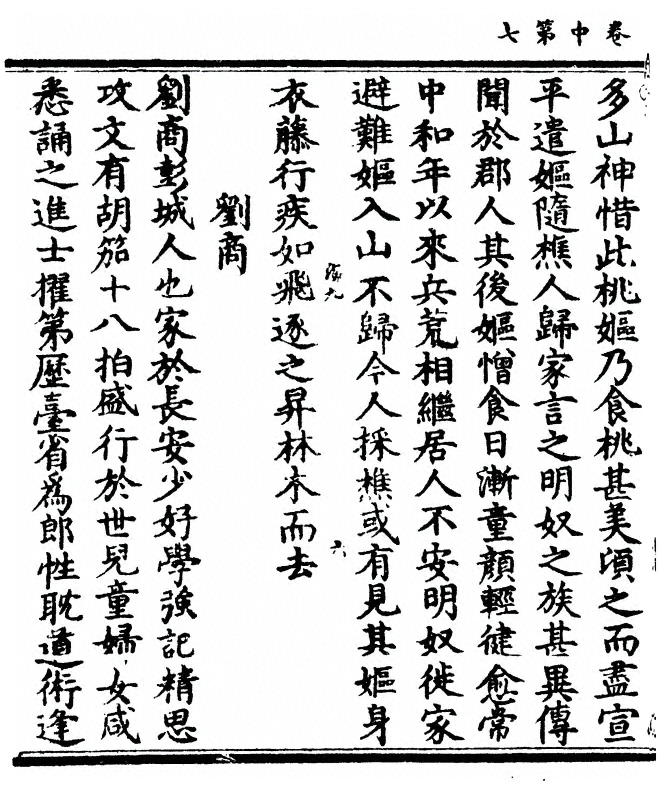 卷中第七
多山神惜此桃嫗乃食桃甚美頃之而盡宣
平遣嫗隨樵人歸家言之明奴之族甚異傳
聞於郡人其後嫗憎食日漸童顏輕健愈常
中和年以來兵荒相繼居人不安明奴徙家
避難嫗入山不歸今人採樵或有見其嫗身
衣藤行疾如飛逐之昇林木而去
劉商
劉商彭城人也家於長安少好學強記精思
攻文有胡笳十八拍盛行於世兒童婦女咸
悉誦之進士擢第歷臺省為郎性耽道術逢